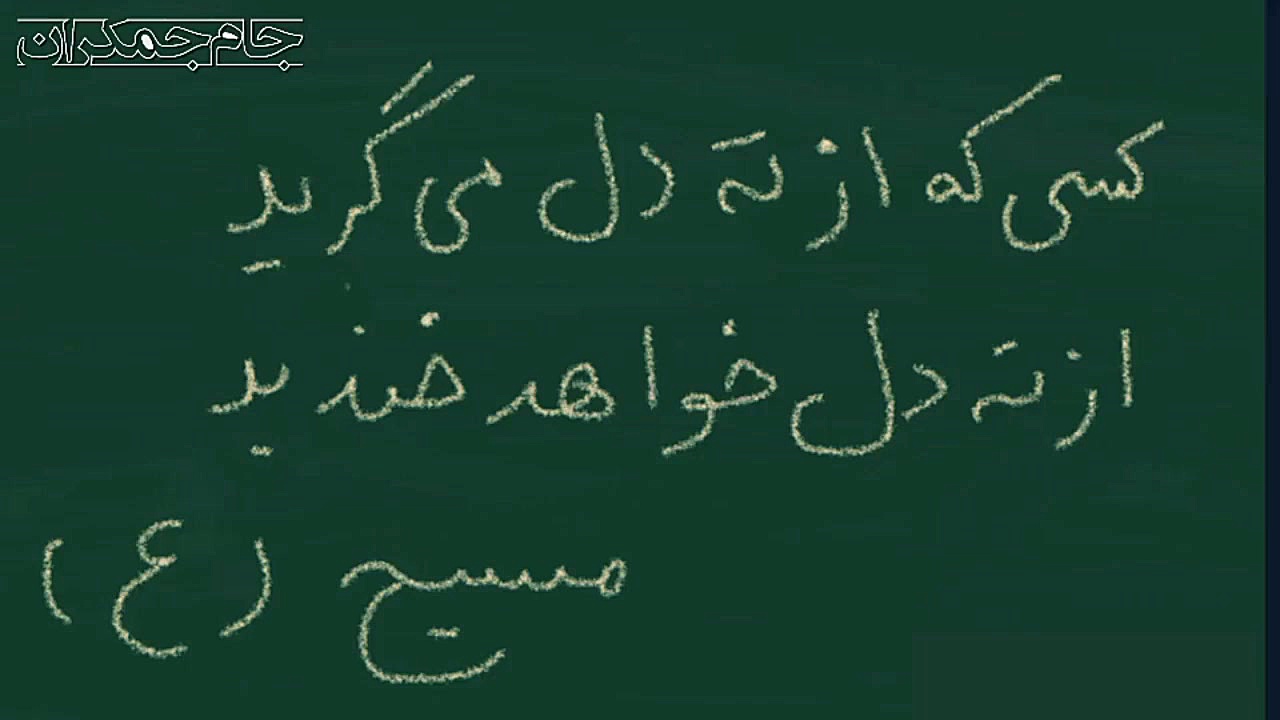 جام جمکران
کسی که از ته دل می گرید
از ته دل خواهد خندید
مسیح (ع)